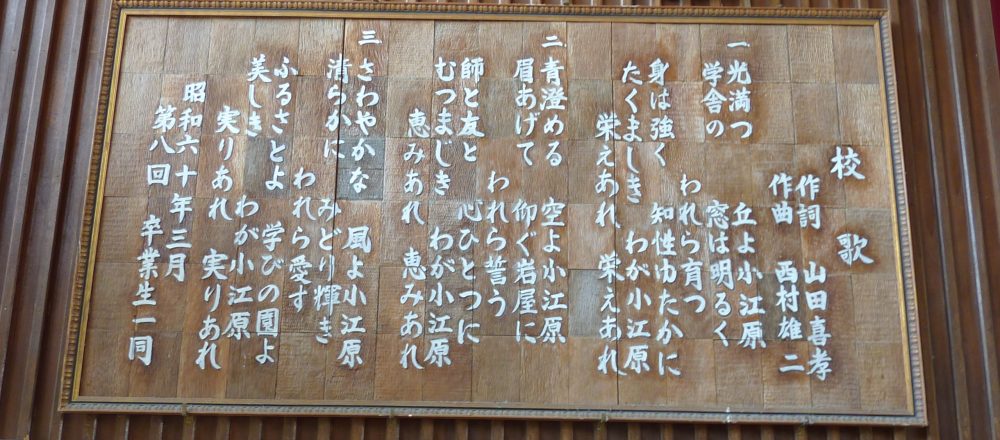 校歌
作詞 山田喜孝
作曲 西村雄二
一 光満つ 丘よ小江原
学舎の 窓は明るく
われら育つ
身は強く 知性ゆたかに
たくましき わが小江原
栄えあれ 栄えあれ
二 青澄める 空よ小江原
眉あげて 仰ぐ岩屋に
われら誓う
師と友と 心ひとつに
むつまじき わが小江原
恵みあれ 恵みあれ
三 さわやかな 風よ小江原
清らかに みどり輝き
われら愛す
ふるさとよ 学びの園よ
美しき わが小江原
実りあれ 実りあれ
昭和六十年三月
第八回 卒業生一同